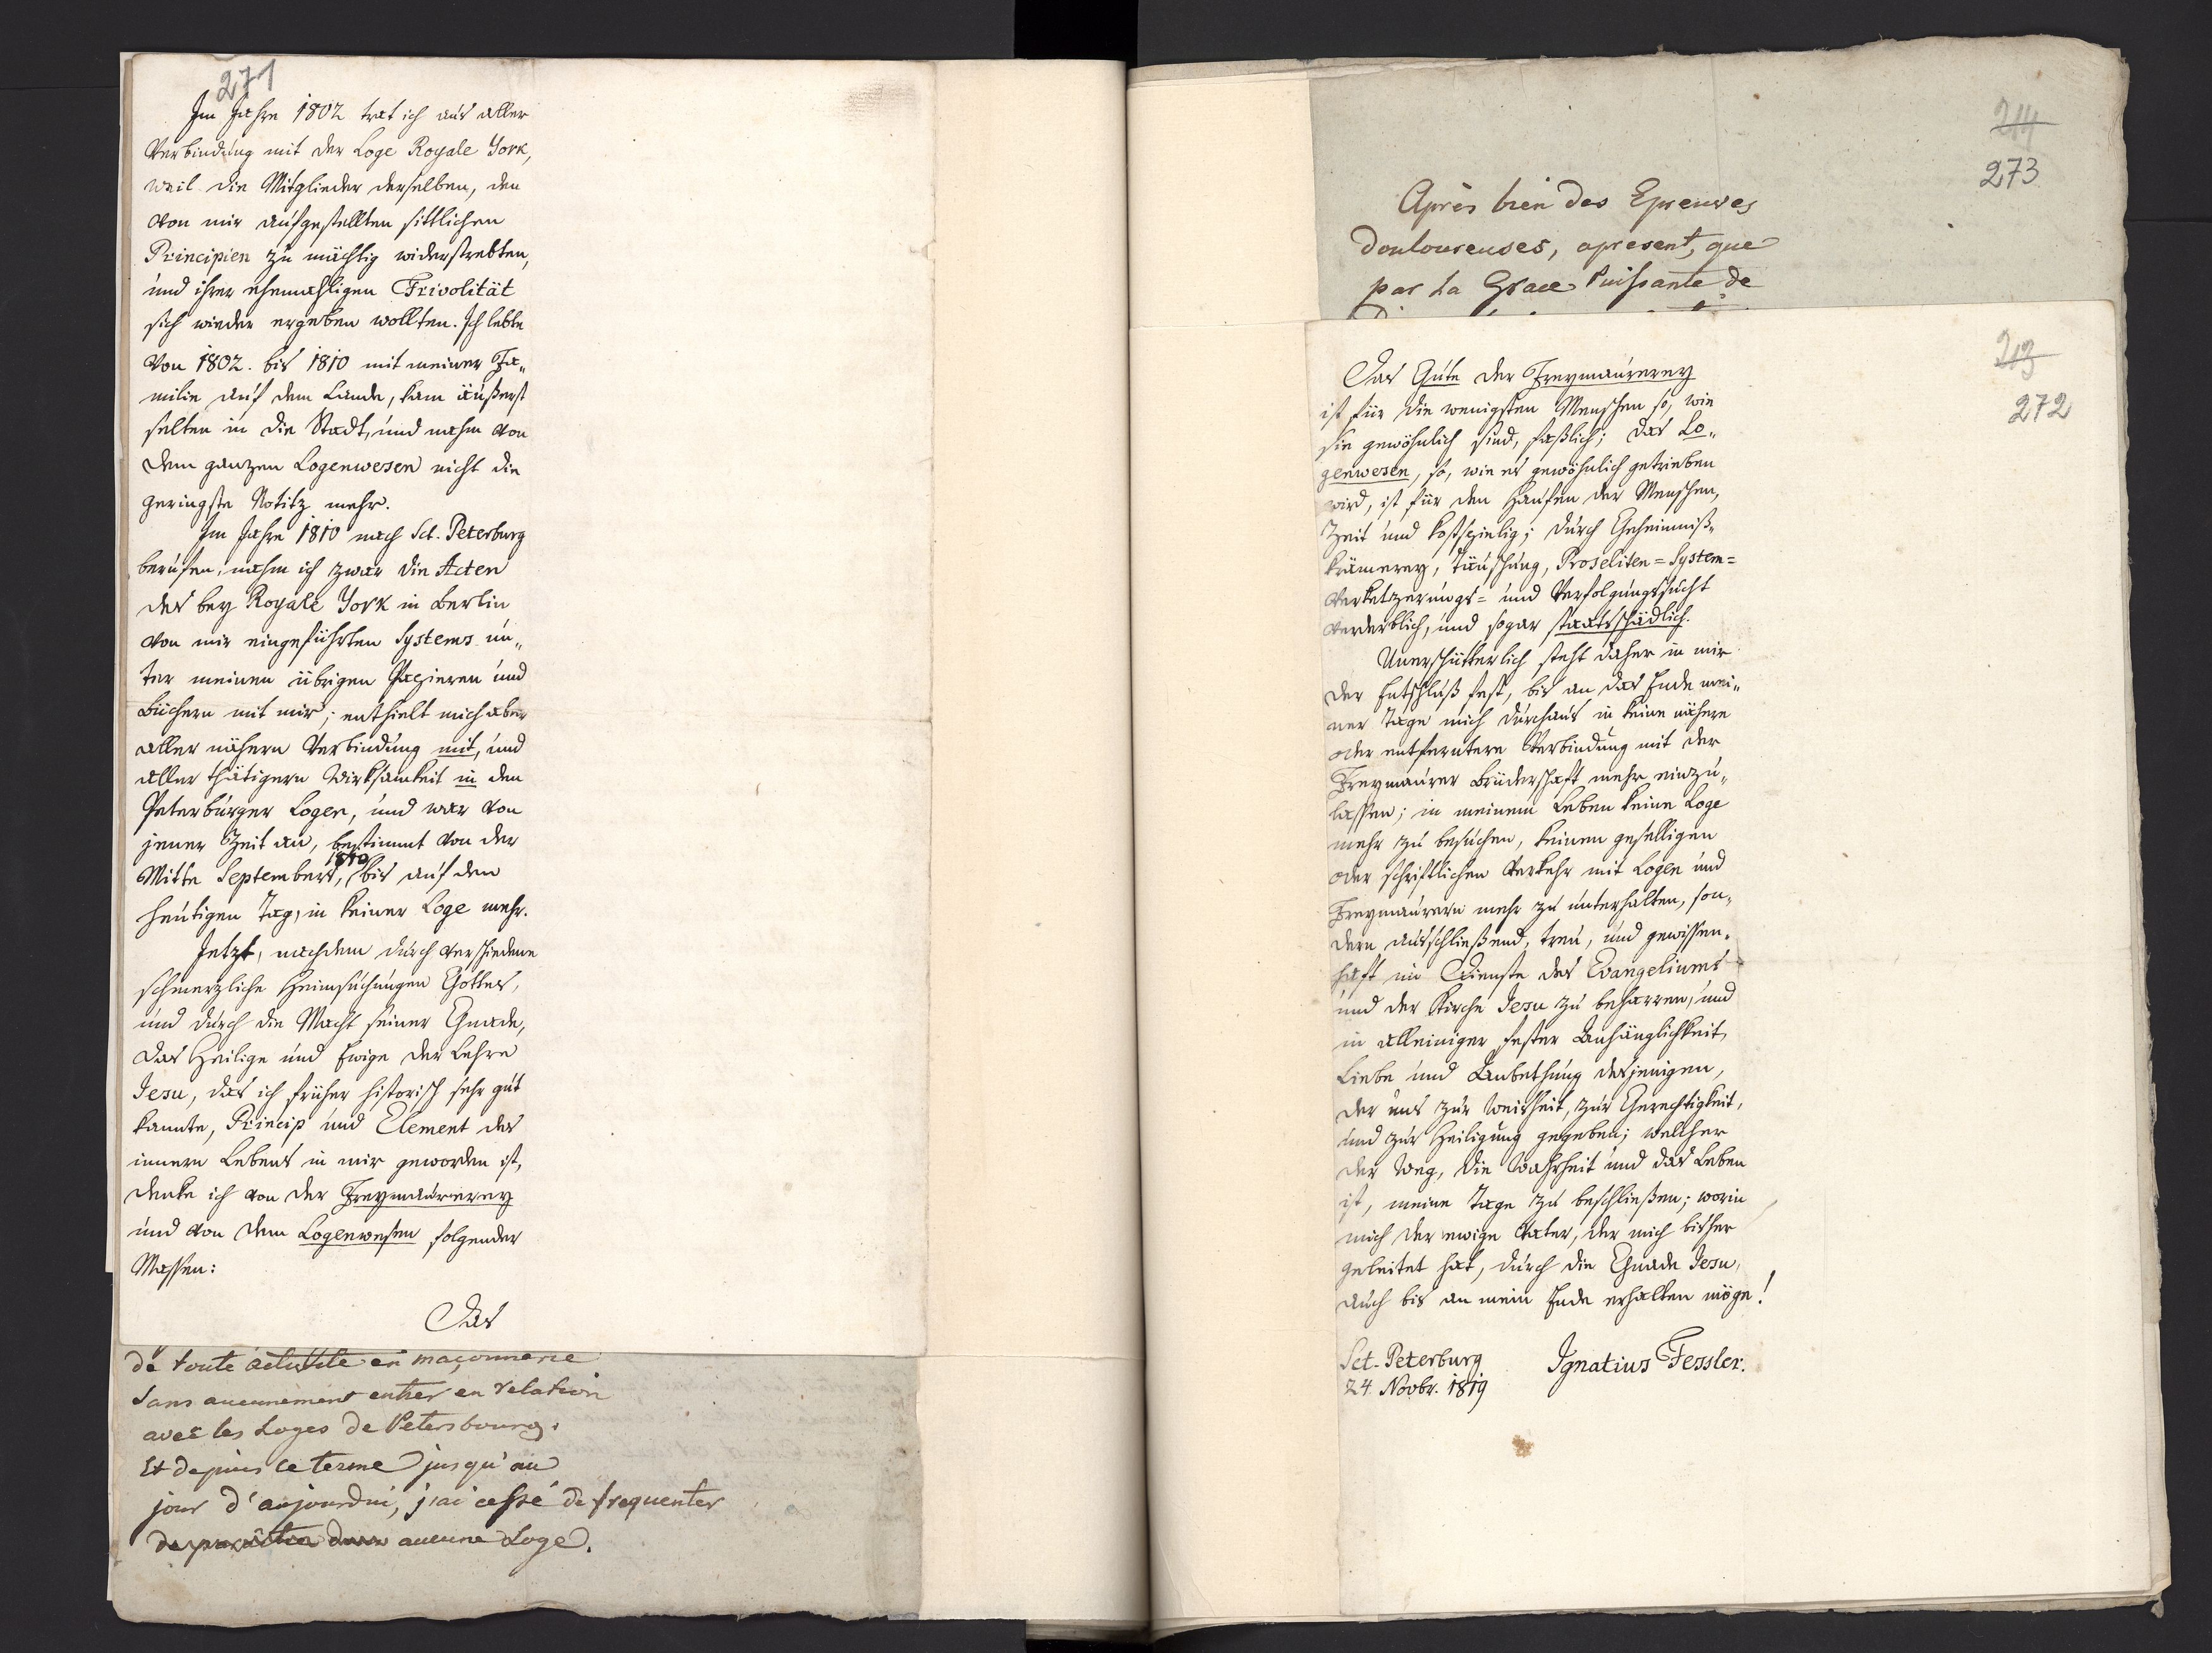 271
Im Jahre 1802 trat ich aus aller
Verbindung mit der Loge Royale York,
weil die Mitglieder derselben, den
von mir aufgestellten sittlichen
Principien zu mächtig widerstrebten,
und ihrer ehemahligen Frivolität
sich wieder ergeben wollten. Ich lebte
von 1802. bis 1810 mit meiner Fa„
milie auf dem Lande, kam äußerst
selten in die Stadt, und nahm von
dem ganzen Logenwesen nicht die
geringste Notitz mehr.
Im Jahre 1810 nach Sct. Peterburg
berufen, nahm ich zwar die Acten
des bey Royale York in Berlin
von mir eingeführten Systems un„
ter meinen übrigen Papieren und
Büchern mit mir; enthielt mich aber
aller nähern Verbindung mit, und
aller thätigern Wirksamkeit in den
Peterburger Logen, und war von
jener Zeit an, bestimmt von der
Mitte Septembers, 1810 bis auf den
heutigen Tag, in keiner Loge mehr.
Jetzt, nachdem durch verschiedene
schmerzliche Heimsuchungen Gottes,
und durch die Macht seiner Gnade,
das Heilige und Ewige der Lehre
Jesu, das ich früher historisch sehr gut
kannte, Princip und Element des
innern Lebens in mir geworden ist,
denke ich von der Freymaurerey
und von dem Logenwesen folgender
Massen:
Das
de toute activité en maçonnerie
sans aucunement entrer en relation
avec les Loges de Petersbourg.
Et depuis ce terme jusqu'au
jour d'aujourdui, j'ai cessé de frequenter
aucune Loge.
214
273
Après bien des Epreuves
douloureuses, apresent, que
par la Grace Puissante de
213
272
Das Gute der Freymaurerey
ist für die wenigsten Menschen so, wie
sie gewöhnlich sind, faßlich; das Lo„
genwesen, so, wie es gewöhnlich getrieben
wird, ist für den Haufen der Menschen,
Zeit und kostspielig; durch Geheimniß„
krämerey, Täuschung, Proseliten=System=
Verketzerungs= und Verfolgungssucht
verderblich, und sogar staatsschädlich.
Unerschütterlich steht daher in mir
der Entschluß fest, bis an das Ende mei„
ner Tage mich durchaus in keine nähere
oder entferntere Verbindung mit der
Freymaurer Brüderschaft mehr einzu„
lassen; in meinem Leben keine Loge
mehr zu besuchen, keinen geselligen
oder schriftlichen Verkehr mit Logen und
Freymaurern mehr zu unterhalten, son„
dern ausschließend, treu, und gewissen„
haft im Dienste des Evangeliums
und der Kirche Jesu zu beharren, und
in alleiniger fester Anhänglichkeit,
Liebe und Anbethung desjenigen,
der uns zur Weisheit, zur Gerechtigkeit,
und zur Heiligung gegeben; welcher
der Weg, die Wahrheit und das Leben
ist, meine Tage zu beschließen; worin
mich der ewige Vater, der mich bisher
geleitet hat, durch die Gnade Jesu,
auch bis an mein Ende erhalten möge!
Sct-Peterburg
24. Novbr. 1819
Ignatius Fessler.